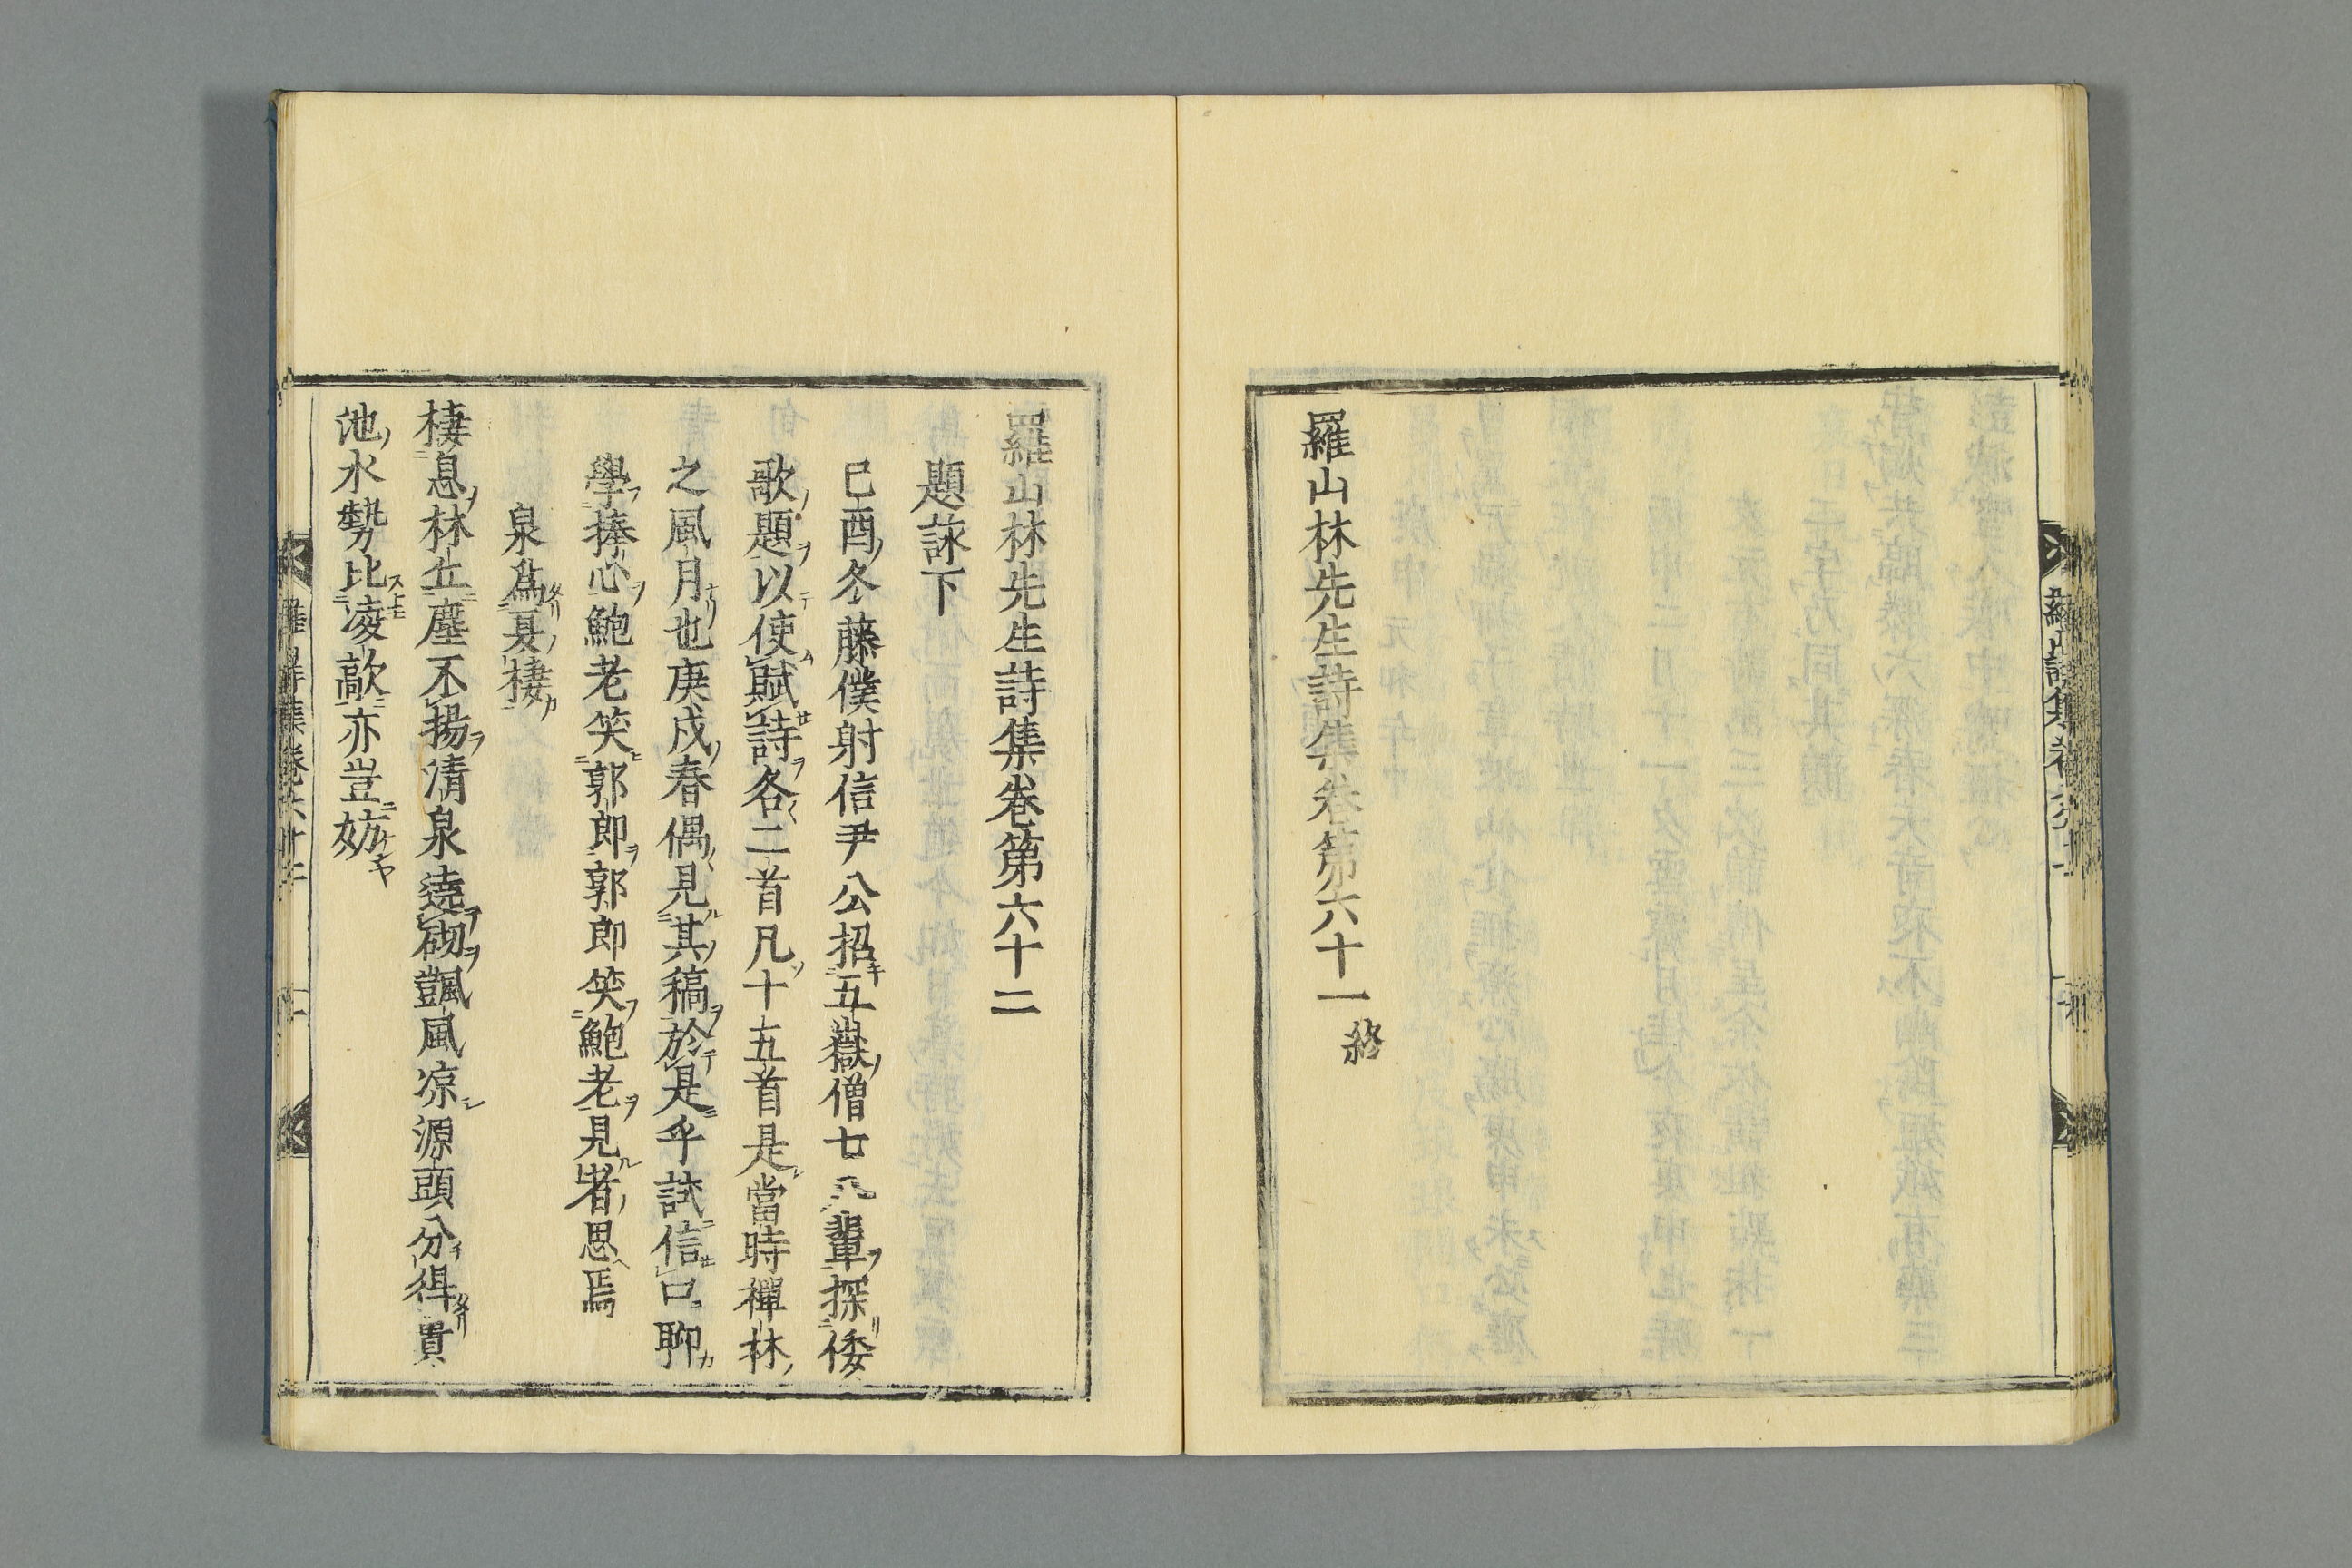 羅山林先生詩集卷第六十一終
羅山林先生詩集卷第六十二
題詠下
己酉冬藤僕射信尹公招五嶽僧七八輩探倭
歌題以使賦詩各二首凡十五首是當時禪林
之風月也庚戌春偶見其稿於是乎試信口聊
學捧心鮑老笑郭郎郭郎笑鮑老見者思焉
泉爲夏棲
棲息林丘塵不揚清泉遶砌颽風凉源頭分得貫
池水勢比凌歊亦豈妨